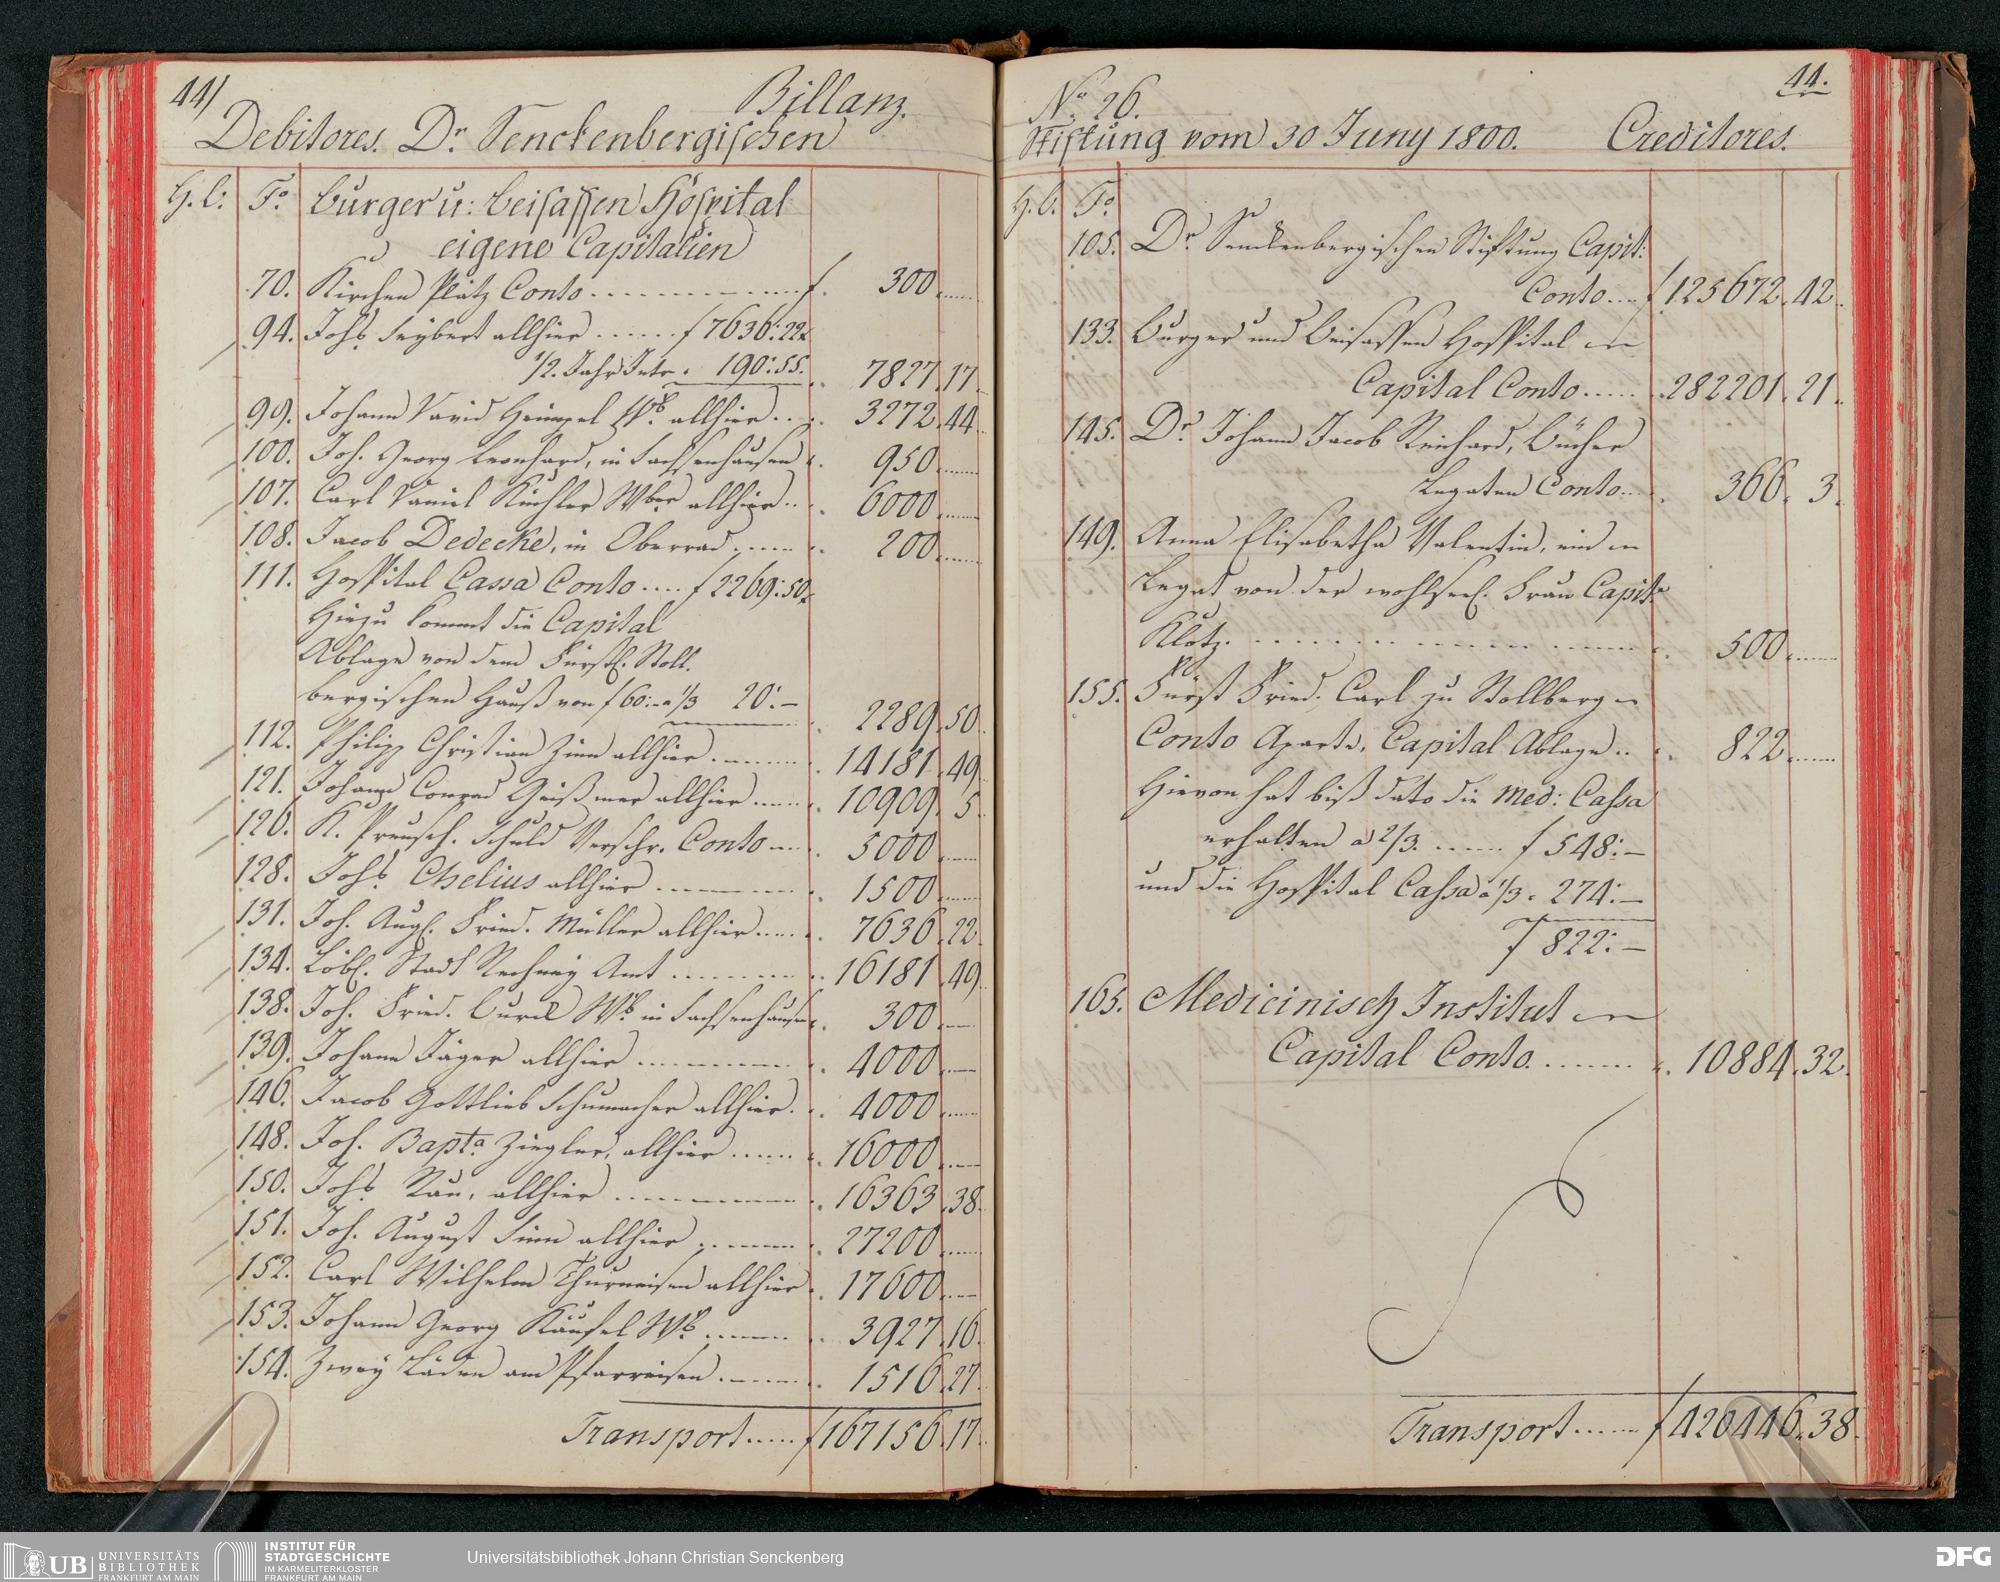 44/ Billanz.
Debitores. Dr. Senckenbergischen
H. l: Fo. burger u: beisassen Hospital
eigene Capitalien
70. Kirchen Platz Conto f. 300
94. Johs. Seybert allhier f 7636:22x
1/2 Jahr Inte. 190:55. 7827.17
99. Johann David Heimpel Wb. allhier 3272.44
100. Joh. Georg Leonhard, in Sachsenhausen 950
107. Carl Daniel Küchler Wber allhier 6000
108. Jacob Dedecke, in Oberrad 200
111. Hospital Cassa Conto f 2269:50x
Hiezu kommt die Capital
Ablage von dem Fürstl. Stoll
bergischen Hauß von f 60:- a 1/3 20:- 2289.50
112. Philipp Christian Zinn allhier 14181.49
121. Johann Conrad Geißmer allhier 10909.5
126. K. Preusch. Schuld Verschr. Conto 5000
128. Johs. Chelius allhier 1500
131. Joh. Augl. Fried. Müller allhier 7636.22
134. Löbl. Stadt Rechney Amt 16181.49
138. Joh. Fried. Wb. in Sachsenhausen 300
139. Johann Jäger allhier 4000
146. Jacob Gottlieb Schumacher allhier. 4000
148. Joh. Bapta. Ziegler, allhier 16000
150. Johs. Rau, allhier 16363.38
151. Joh. August allhier 27200
152. Carl Wilhelm Thurneisen allhier 17600
153. Johann Georg Käufel Wb. 3927.16
154. Zwey Läden am Pfarreisen 1516.27
Transport f 167156.17
No. 26. 44.
Stiftung vom 30 Juny 1800. Creditores.
H. l. Fo.
105. Dr. Senckenbergischen Stiftung Capit:
Conto f 125672.42
133. Burger und Beisassen Hospital
Capital Conto 282201.21
145. Dr. Johann Jacob Reichard, Bücher
Legaten Conto 366.3
149. Anna Elisabetha Valentin, ein
Legat von der wohlseel. Frau Capit.
Klotz. 500
155. Fürst Fried. Carl zu Stollberg
Conto Aparte, Capital Ablage 822
Hievon hat biß dato die Med: Cassa
erhalten a 2/3. f 548:-
und die Hospital Cassa a 1/3 274:-
f 822:-
165. Medicinisch Institut
Capital Conto. 10884.32
Transport f 420446.38
UB UNIVERSITÄTS
BIBLIOTHEK
FRANKFURT AM MAIN
INSTITUT FÜR
STADTGESCHICHTE
IM KARMELITERKLOSTER
FRANKFURT AM MAIN
Universitätsbibliothek Johann Christian Senckenberg
DFG